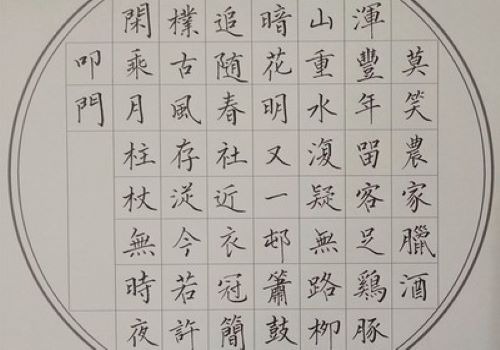 莫笑農家臘酒
渾豐年留客足鷄豚
山重水復疑無路柳
暗花明又一邨簫鼓
追随春社近衣冠簡
樸古風存從今若許
閑乘月柱杖無時夜
叩門